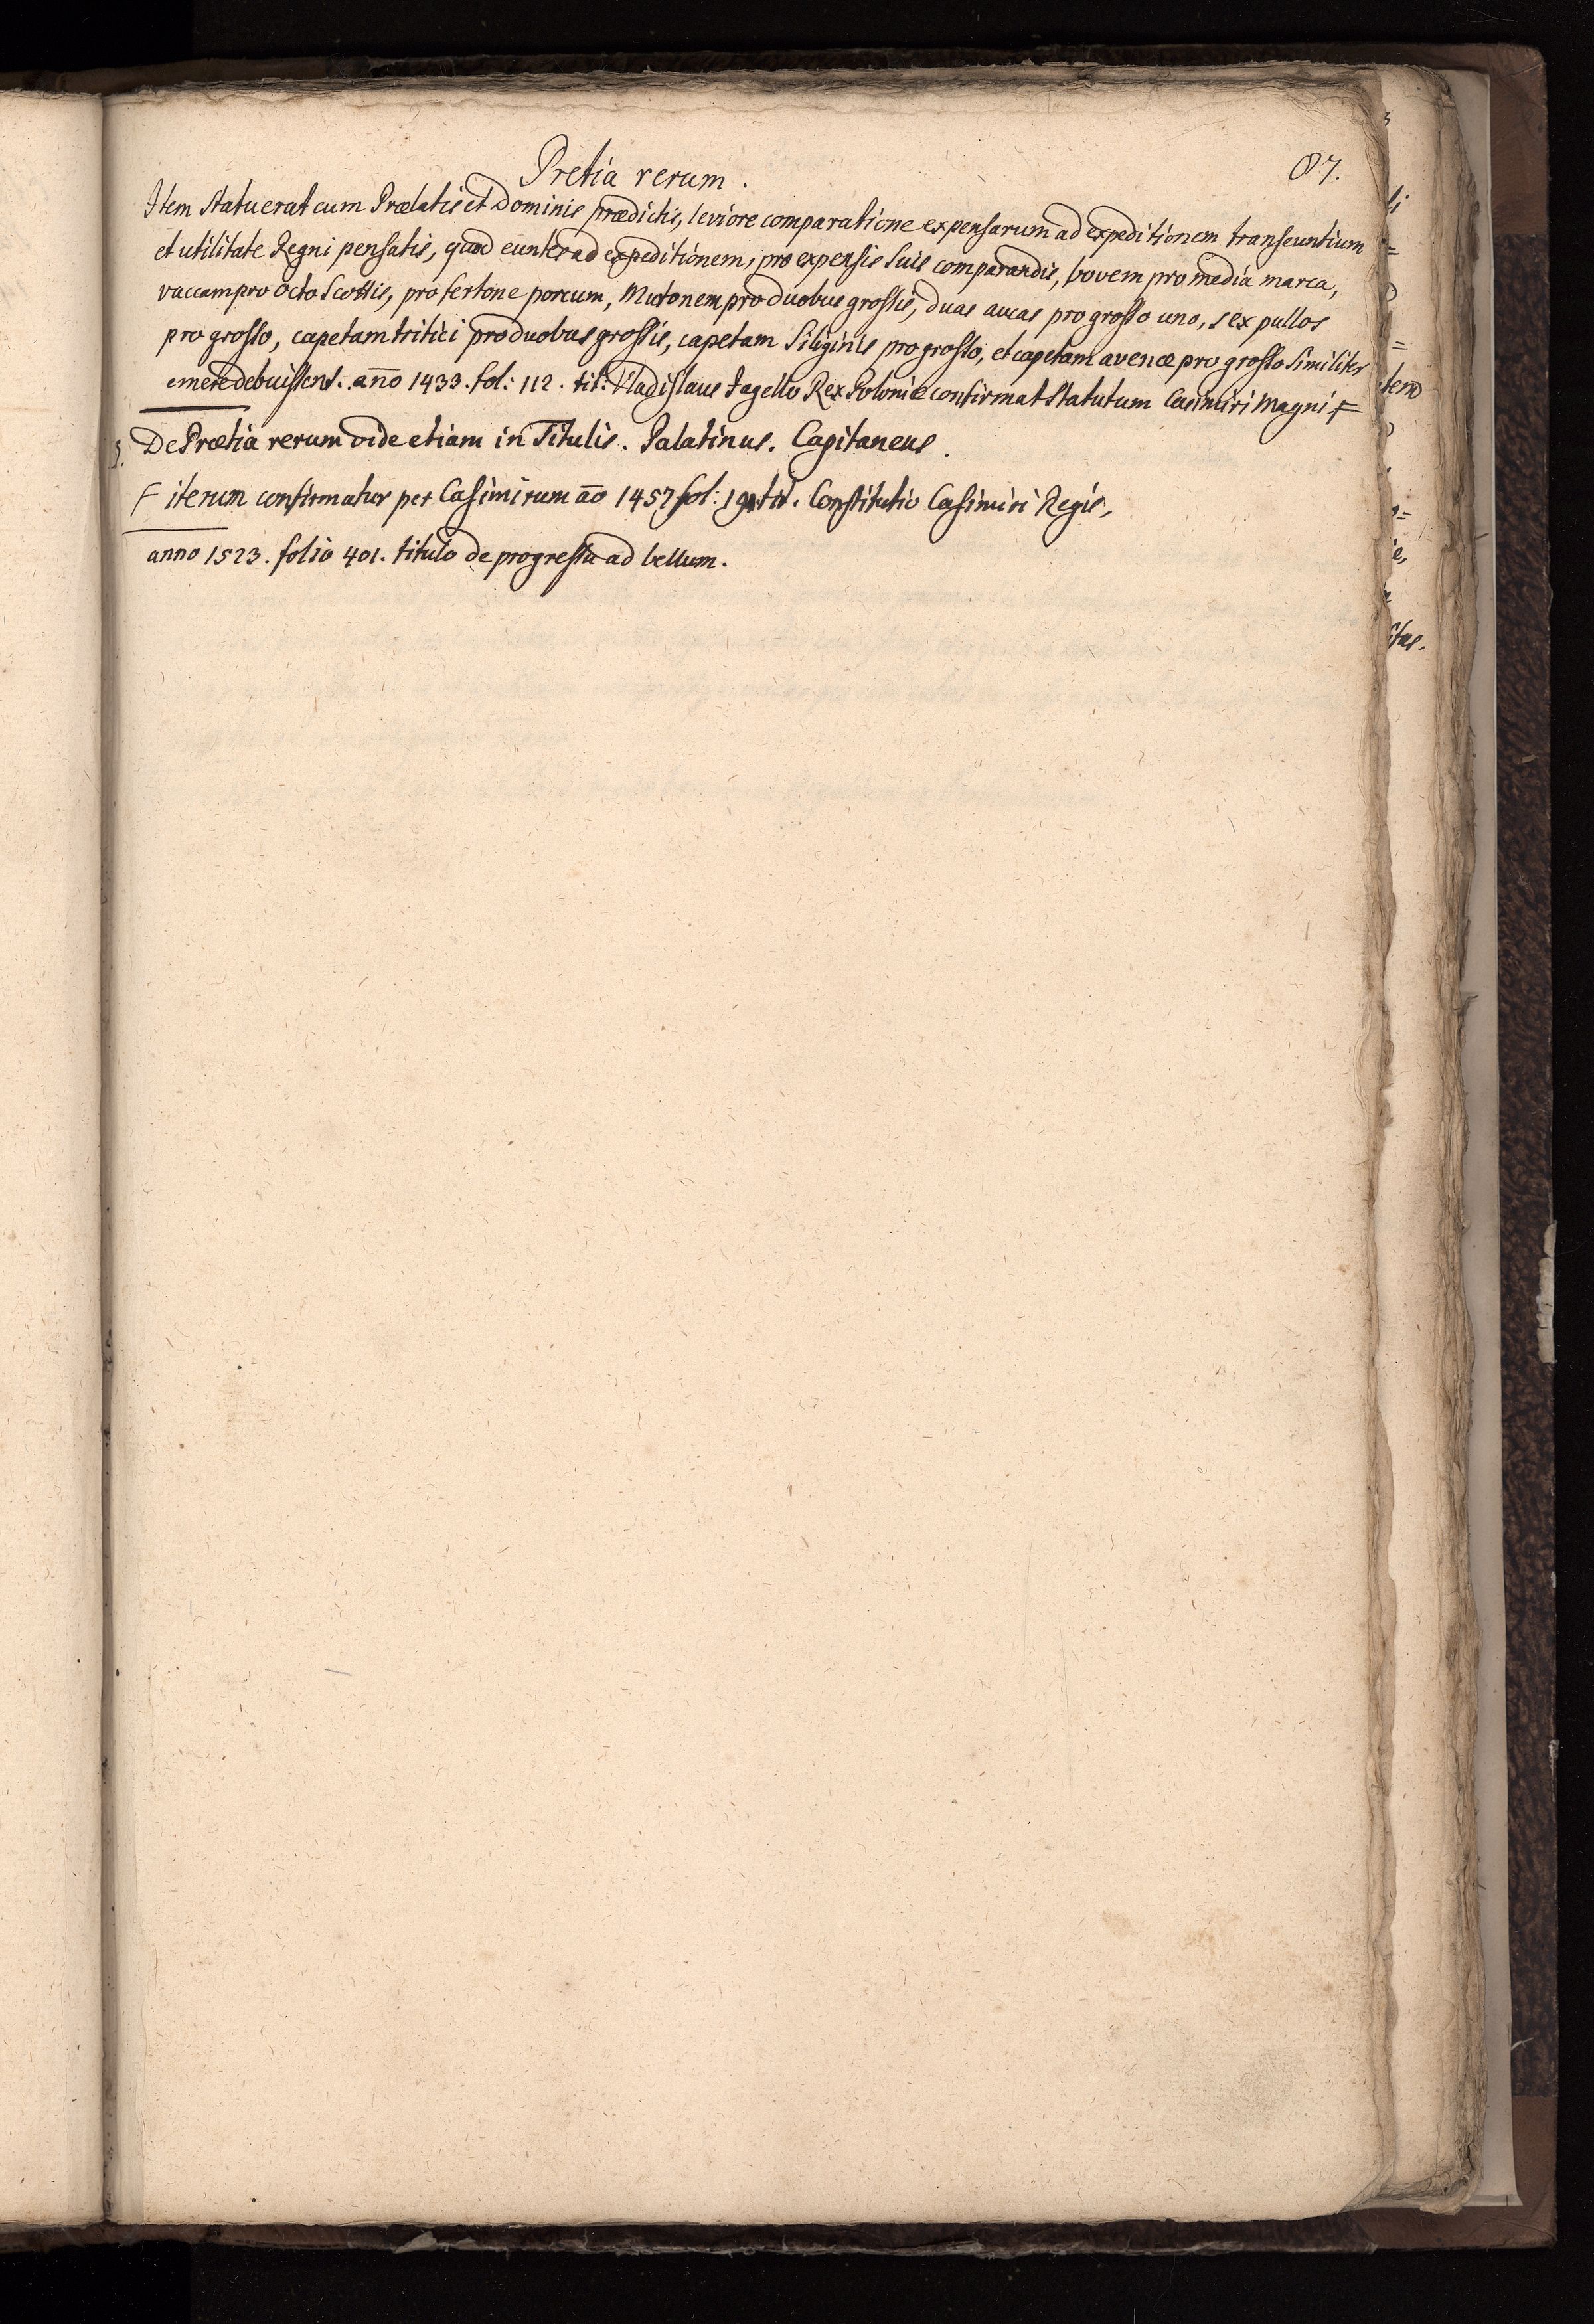 Pretia rerum.
87.
Item statuerat cum Prælatis et Dominis prædictis, leviore comparatione expensarum ad expeditionem transeuntium
et utilitate Regni pensatis, quod euntes ad expeditionem, pro expensis suis comparandis, bovem pro media marca,
vaccam pro octo Scottis, pro fertone porcum, Mutonem pro duobus grossis, duas aucas pro grosso uno, sex pullos
pro grosso, capetam tritici pro duobus grossis, capetam Siliginis pro grosso, et capetam avenæ pro grosso similiter
emere debuissent. año 1433. fol: 112. tit: Vladislaus Jagello Rex Poloniæ confirmat Statutum Casimiri Magni
De Prætia rerum vide etiam in Titulis. Palatinus. Capitaneus.
iterum confirmatur per Casimirum ao 1457 fol: tit. Constitutio Casimiri Regis,
anno 1523. folio 401. titulo de progressu ad bellum.